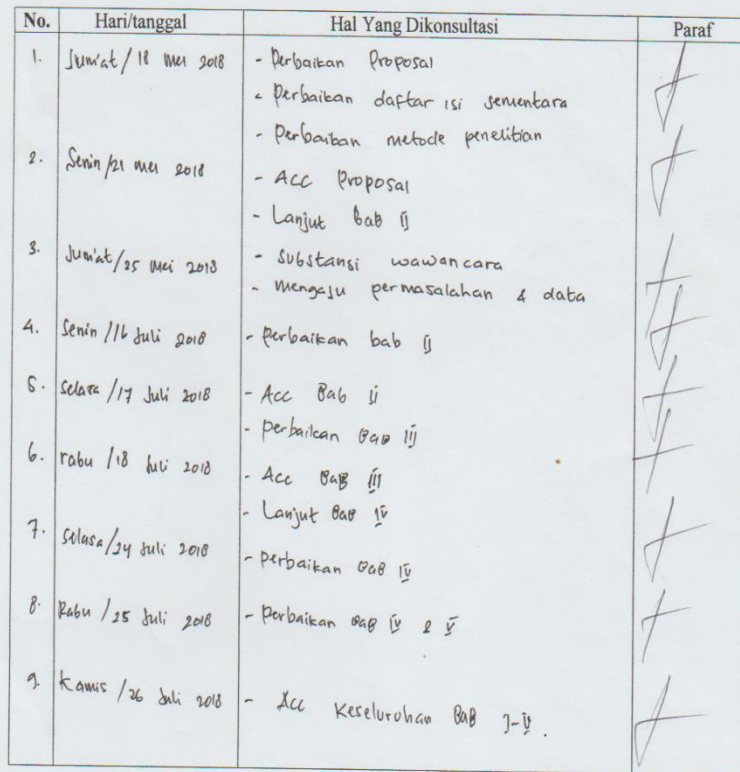 No. Hari/tanggal Hal Yang Dikonsultasi Paraf
1. Jum'at / 18 Mei 2018 - Perbaikan Proposal
- Perbaikan daftar isi sementara
- Perbaikan metode penelitian
2. Senin / 21 Mei 2018
- Acc Proposal
- Lanjut Bab II
3. Jum'at / 25 Mei 2018 - Substansi wawancara
- mengaju permasalahan & data
4. Senin / 16 Juli 2018 - perbaikan bab II
5. Selasa / 17 Juli 2018 - Acc Bab II
- perbaikan Bab III
6. rabu / 18 Juli 2018
- Acc BaB III
- Lanjut BaB IV
7. Selasa / 24 Juli 2018
- perbaikan BaB IV
8. Rabu / 25 Juli 2018 - perbaikan BaB IV & V
9. Kamis / 26 Juli 2018 - Acc Keseluruhan BaB I-V.